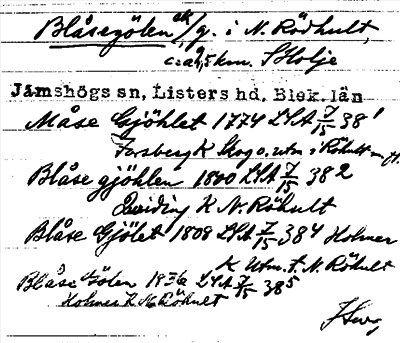 Blåsegölen ek/g. i N. Rödhult,
c:a 9,5 km. S Holje
Jämshögs sn, Listers hd, Blek. län
Måse Gjöhlet 1774 LSA 7/15 38¹
Forsberg K Skog o. utm i Röhult
Blåse gjöhlen 1800 LSA 7/15 38²
K N. Röhult
Blåse Gjölet 1808 LSA 7/15 38⁴ Holmer
K Utm. t. N. Röhult
Blåse Gölen 1836 LSA 7/15 38⁵
Holmer K N. Röhult